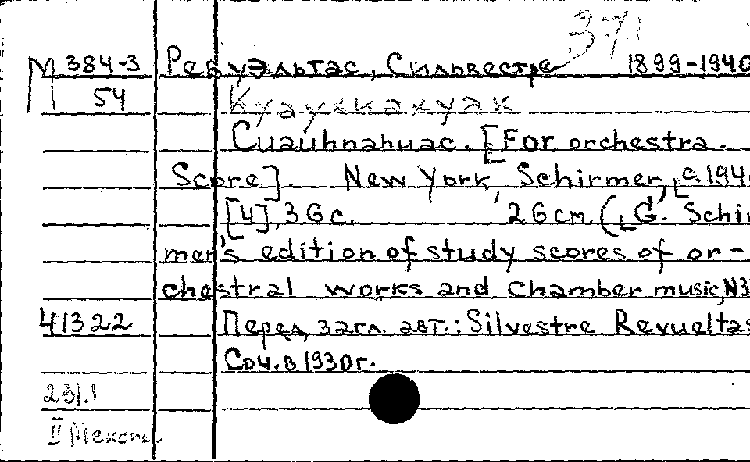 371
М 384-3 Ревуэльтас, Сильвестре 1899-1940
54 Куаукнахуак
Cuauhnahuac. [For orchestra.
Score]. New York, Schirmer, [c.194
[4], 36 c. 26 cm. ([G. Schir
mer's edition of study scores of or-
chestral works and chamber music, N3
41322 Перед загл. авт.: Silvestre Revueltas
Соч. в 1930г.
231.1
II Мекси